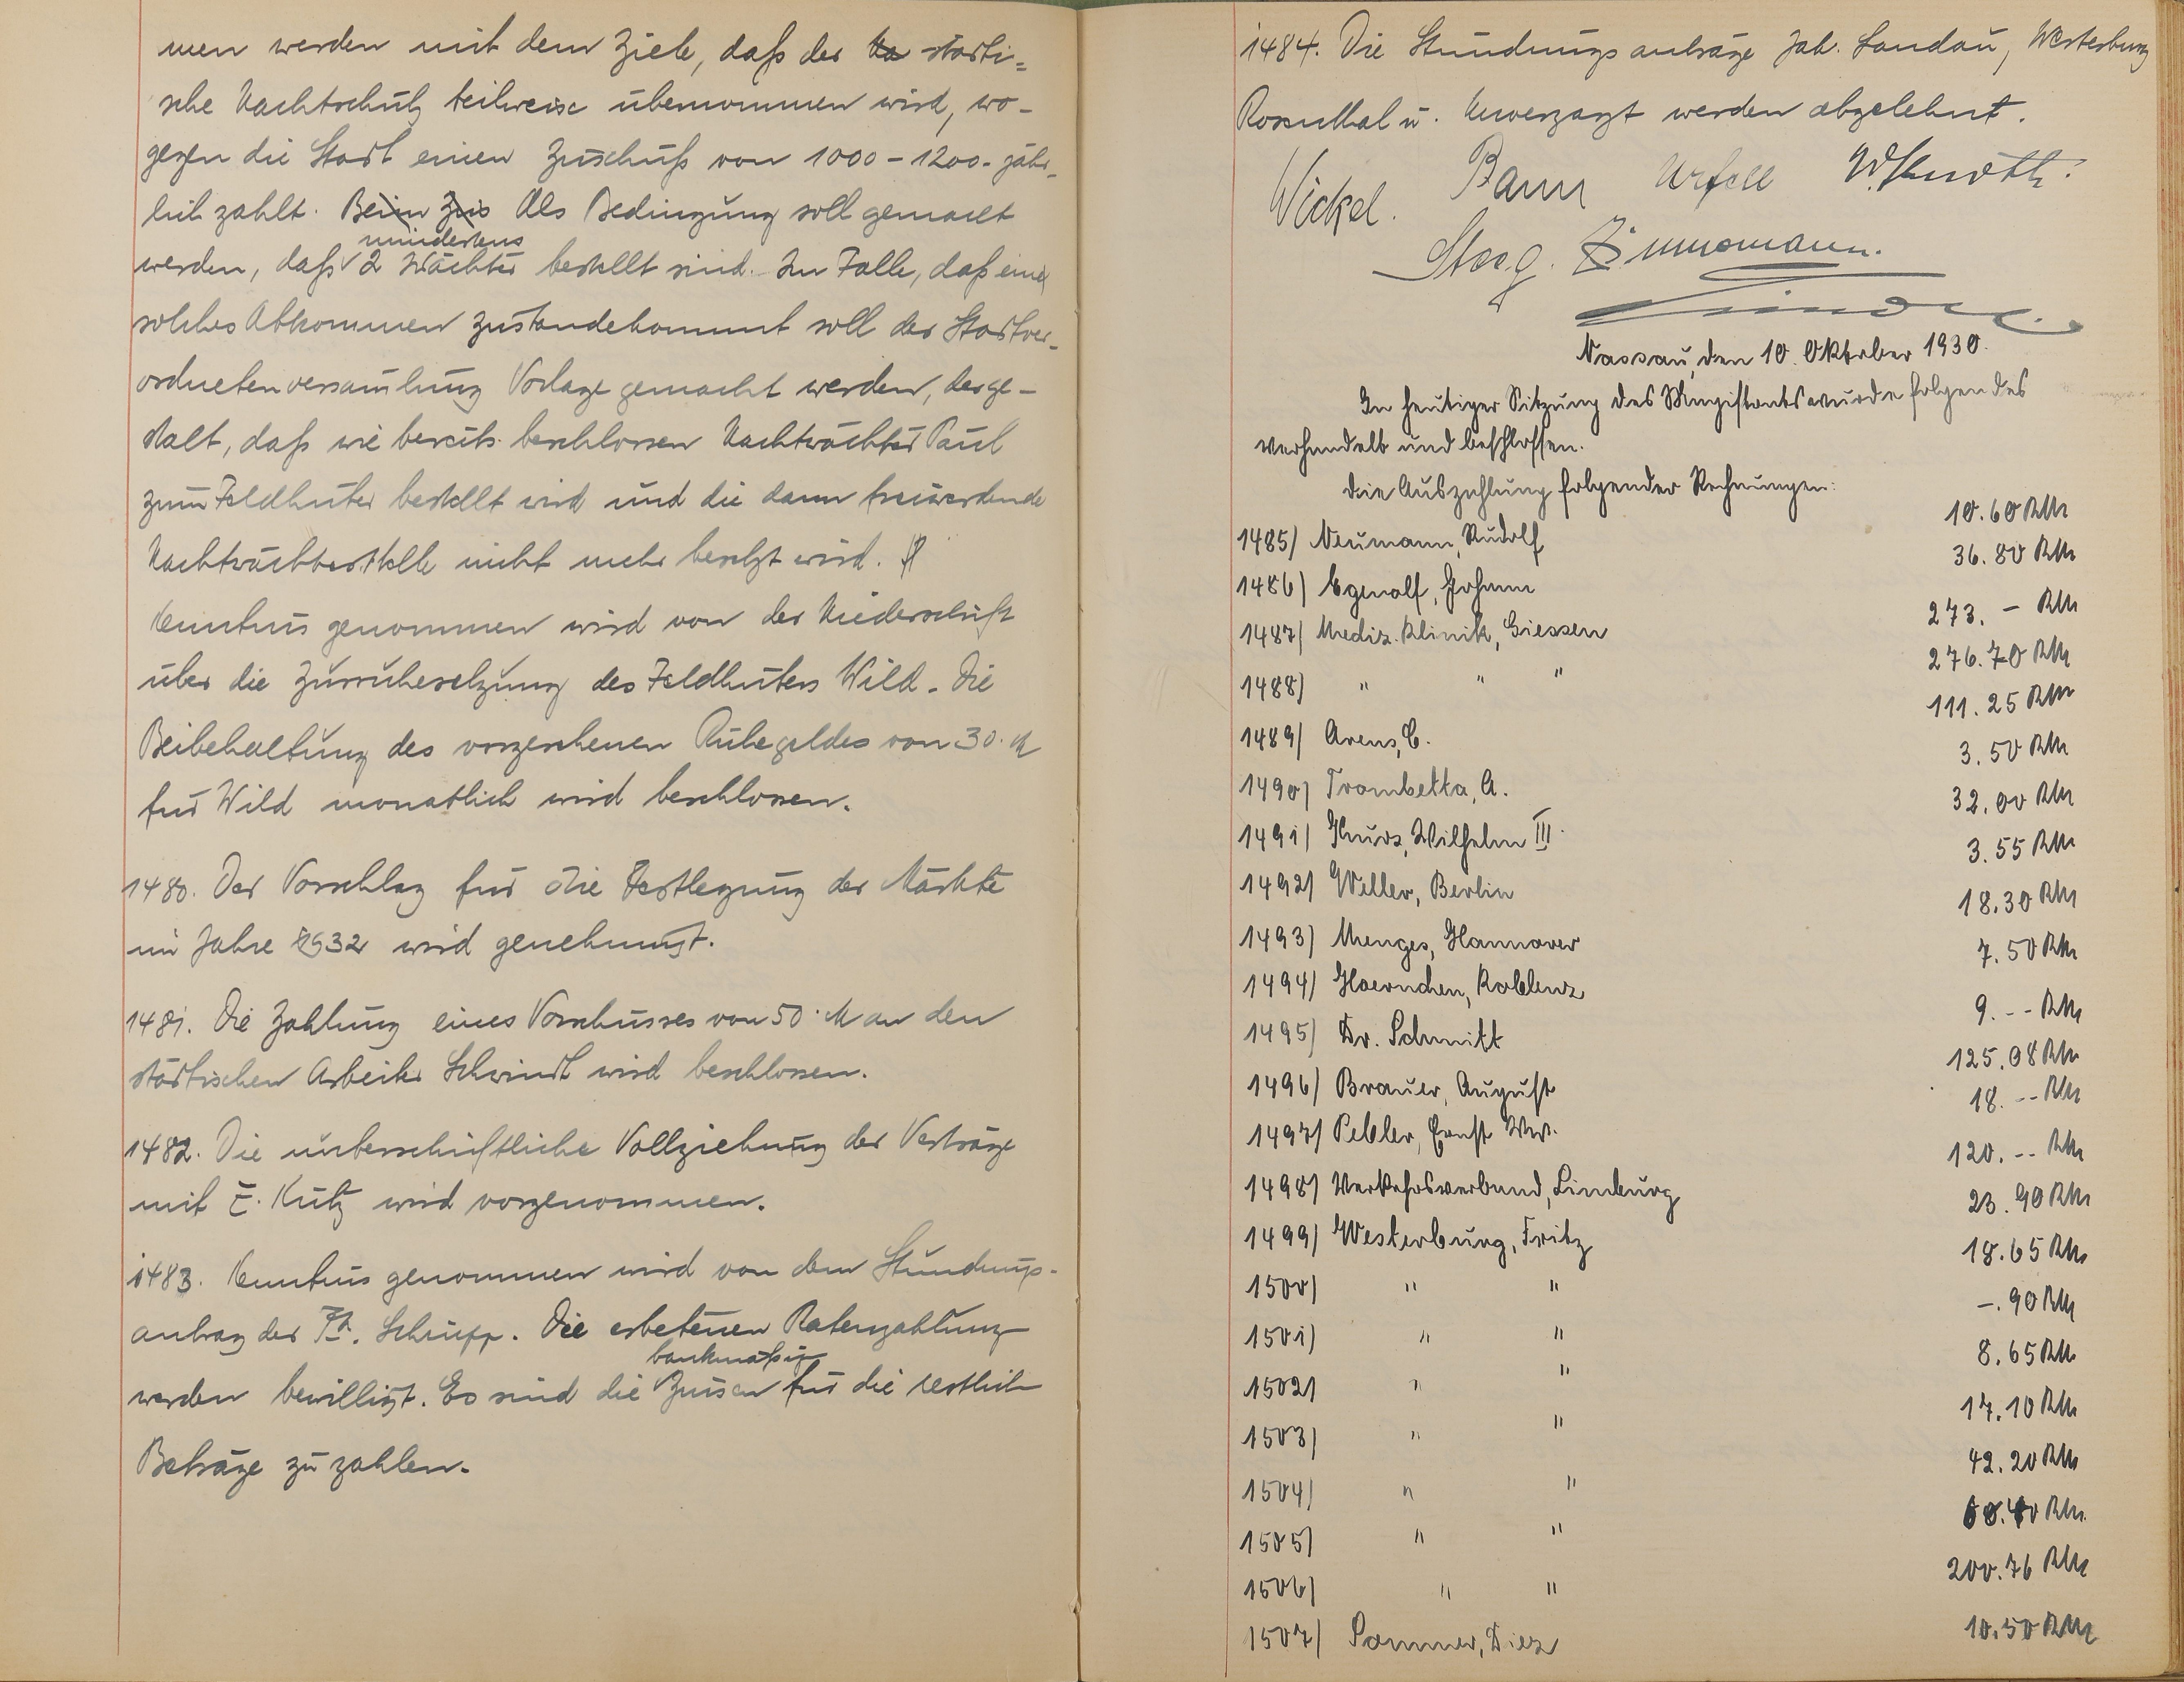 men werden mit dem Ziele, daß der Na städti=
sche Nachtschutz teilweise übernommen wird, wo-
gegen die Stadt einen Zuschuß von 1000-1200.- jähr-
lich zahlt. Beim Zus Als Bedingung soll gemacht
werden, daß mindestens 2 Wächter bestellt sind. Im Falle, daß eine
solches Abkommen zustandekommt soll der Stadtver-
ordnetenversamlung Vorlage gemacht werden, derge-
stalt, daß wie bereits beschlossen Nachtwächter Paul
zum Feldhüter bestellt wird und die dann freiwerdende
Nachtwächterstelle nicht mehr besetzt wird.
Kenntnis genommen wird von der Niederschrift
über die Zurruhesetzung des Feldhüters Wild. Die
Beibehaltung des vorgesehenen Ruhegeldes von 30 M
für Wild monatlich wird beschlossen.
1480. Der Vorschlag für die Festlegung der Märkte
im Jahre 1932 wird genehmigt.
1481. Die Zahlung eines Vorschusses von 50 M an den
städtischen Arbeiter Schwindt wird beschlossen.
1482. Die unterschriftliche Vollziehung der Verträge
mit E. Kutz wird vorgenommen.
1483. Kenntnis genommen wird von dem Stundungs-
antrag der Fa. Schrupp. Die erbetenen Ratenzahlung
werden bewilligt. Es sind die bankmäßig Zinsen für die restlich
Beträge zu zahlen.
1484. Die Stundungsanträge Jak. Landau, Westerburg
Rosenthal u. Unverzagt werden abgelehnt.
Wickel. Baum Unfell
Steeg. Zimmermann.
Nassau, den 10. Oktober 1930.
In heutiger Sitzung des Magistrats wurde folgendes
verhandelt und beschlossen.
die Auszahlung folgender Rechnungen:
1485) Neumann, Rudolf 10.60 RM
1486) Egenolf, Johann 36.80 RM
1487) Mediz. Klinik, Giessen 273.- RM
1488) " " " 276.70 RM
1489) Arens, C. 111.25 RM
1490) Trombetta, A. 3.50 RM
1491) Kurz, Wilhelm III. 32.00 RM
1492) Weller, Berlin 3.55 RM
1493) Menges, Hannover 18.30 RM
1494) Hoernchen, Koblenz 7.50 RM
1495) Dr. Schmitt 9.-- RM
1496) Brauer, August 125.08 RM
1497) Pebler, Ernst Ww. 18.-- RM
1498) Verkehrsverband, Limburg 120.-- RM
1499) Westerburg, Fritz 23.90 RM
1500) " " 18.65 RM
1501) " " -.90 RM
1502) " " 8.65 RM
1503) " " 17.10 RM
1504) " " 42.20 RM
1505) " " 68.40 RM
1506) " " 200.76 RM
1507) Sommer, Diez 10.50 RM